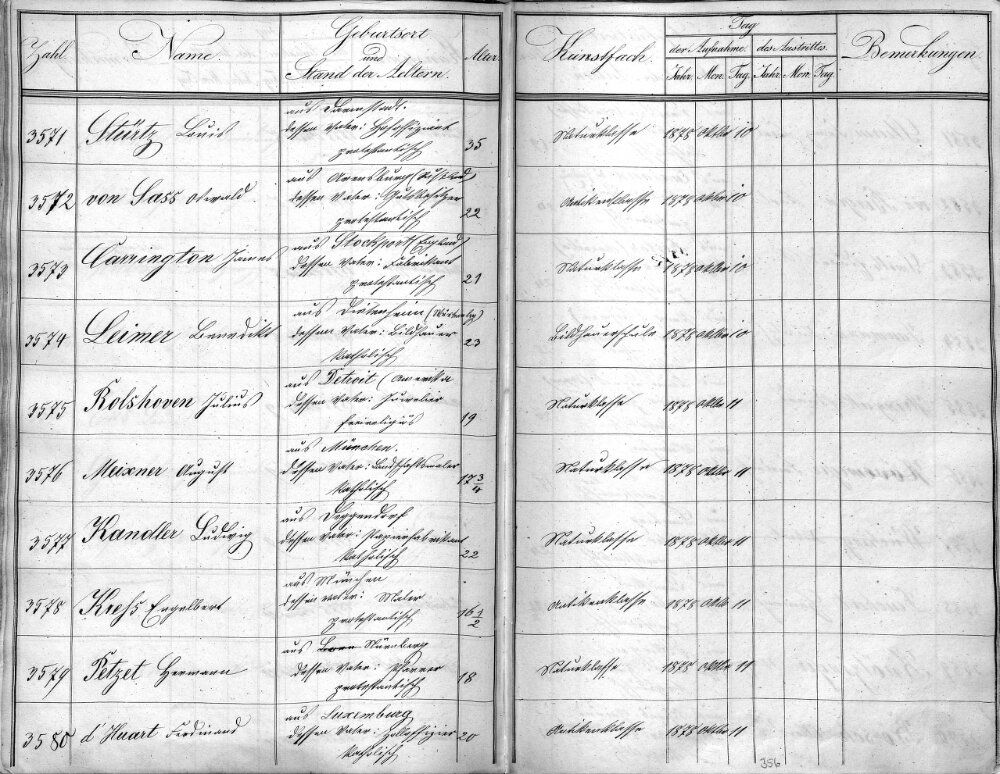 Zahl. Name. Geburtsort und Stand der Aeltern. Alter. Kunstfach. Tag der Aufnahme. des Austrittes. Bemerkungen.
Jahr. Mon. Tag. Jahr. Mon. Tag.
3571 Stürtz Louis
aus Darmstadt.
dessen Vater: Hofoffiziant
protestantisch 35 Naturklasse 1878 Oktbr 10
3572 von Sass Oswald.
aus Arensburg
dessen Vater: Gutsbesitzer
protestantisch 22 Antikenklasse 1878 Oktbr 10
3573 Carrington James
aus Stockport (England)
dessen Vater: Fabrikant
protestantisch 21 Naturklasse 1878 Oktbr 10
3574 Leimer Benedikt
aus Dietenheim
dessen Vater: Bildhauer
katholisch 23 Bildhauerschule 1878 Oktbr 10
3575 Rolshoven Julius
aus Detroit (Amerika
dessen Vater: Juwelier
freireligiös 19 Naturklasse 1878 Oktbr 11
3576 Meixner August
aus München.
dessen Vater: Landschaftsmaler
katholisch 17 3/4 Naturklasse 1878 Oktbr 11
3577 Kandler Ludwig
aus Deggendorf
dessen Vater: Papierfabrikant
katholisch 22 Naturklasse 1878 Oktbr 11
3578 Krehs Engelbert
aus München
dessen Vater: Maler
protestantisch 16 1/2 Antikenklasse 1878 Oktb 11
3579 Petzet Hermann
aus Nürnberg
dessen Vater: Pfarrer
protestantisch 18 Naturklasse 1878 Oktbr 11
3580 d'Huart Ferdinand
aus Luxemburg
dessen Vater: Zolloffizier
katholisch 20 Antikenklasse 1878 Oktbr 11
356